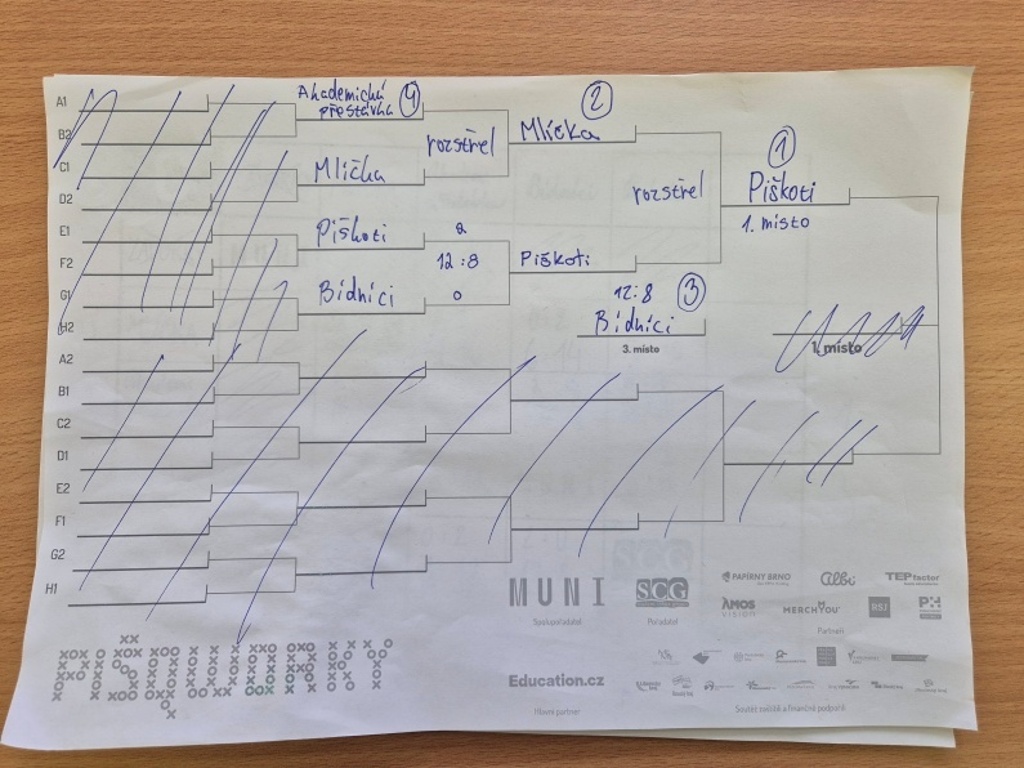 A1
B2
C1
D2
E1
F2
G1
H2
A2
B1
C2
D1
E2
F1
G2
H1
Akademická
přestávka 4
Mlíčka
Piškoti
Bídníci
rozstřel
2
12:8
0
2
Mlíčka
Piškoti
rozstřel
1
Piškoti
1. místo
12:8 3
Bídníci
3. místo
1. místo
PIŠQWORKY
MUNI
Spolupořadatel
SCG
Pořadatel
PAPÍRNY BRNO
Albi
TEPfactor
AMOS
VISION
MERCHYOU
RSJ
Partneři
Education.cz
Hlavní partner
Soutěž záštitě a finančně podpořili